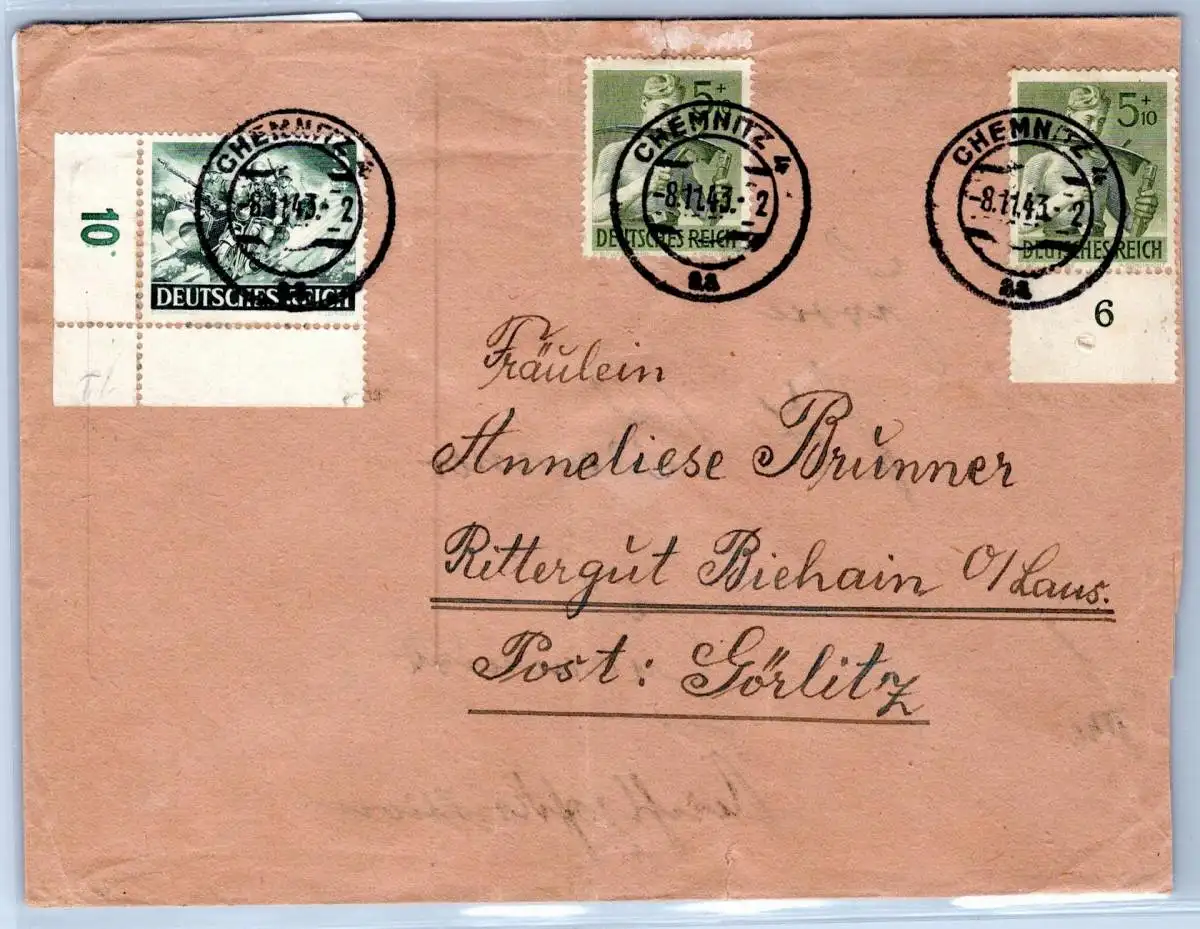 10
DEUTSCHES REICH
CHEMNITZ 4
-8.11.43.-2
aa
5+10
DEUTSCHES REICH
CHEMNITZ 4
-8.11.43.-2
aa
5+10
DEUTSCHES REICH
CHEMNITZ 4
-8.11.43.-2
aa
6
Fräulein
Anneliese Brunner
Rittergut Biehain O/Laus.
Post: Görlitz